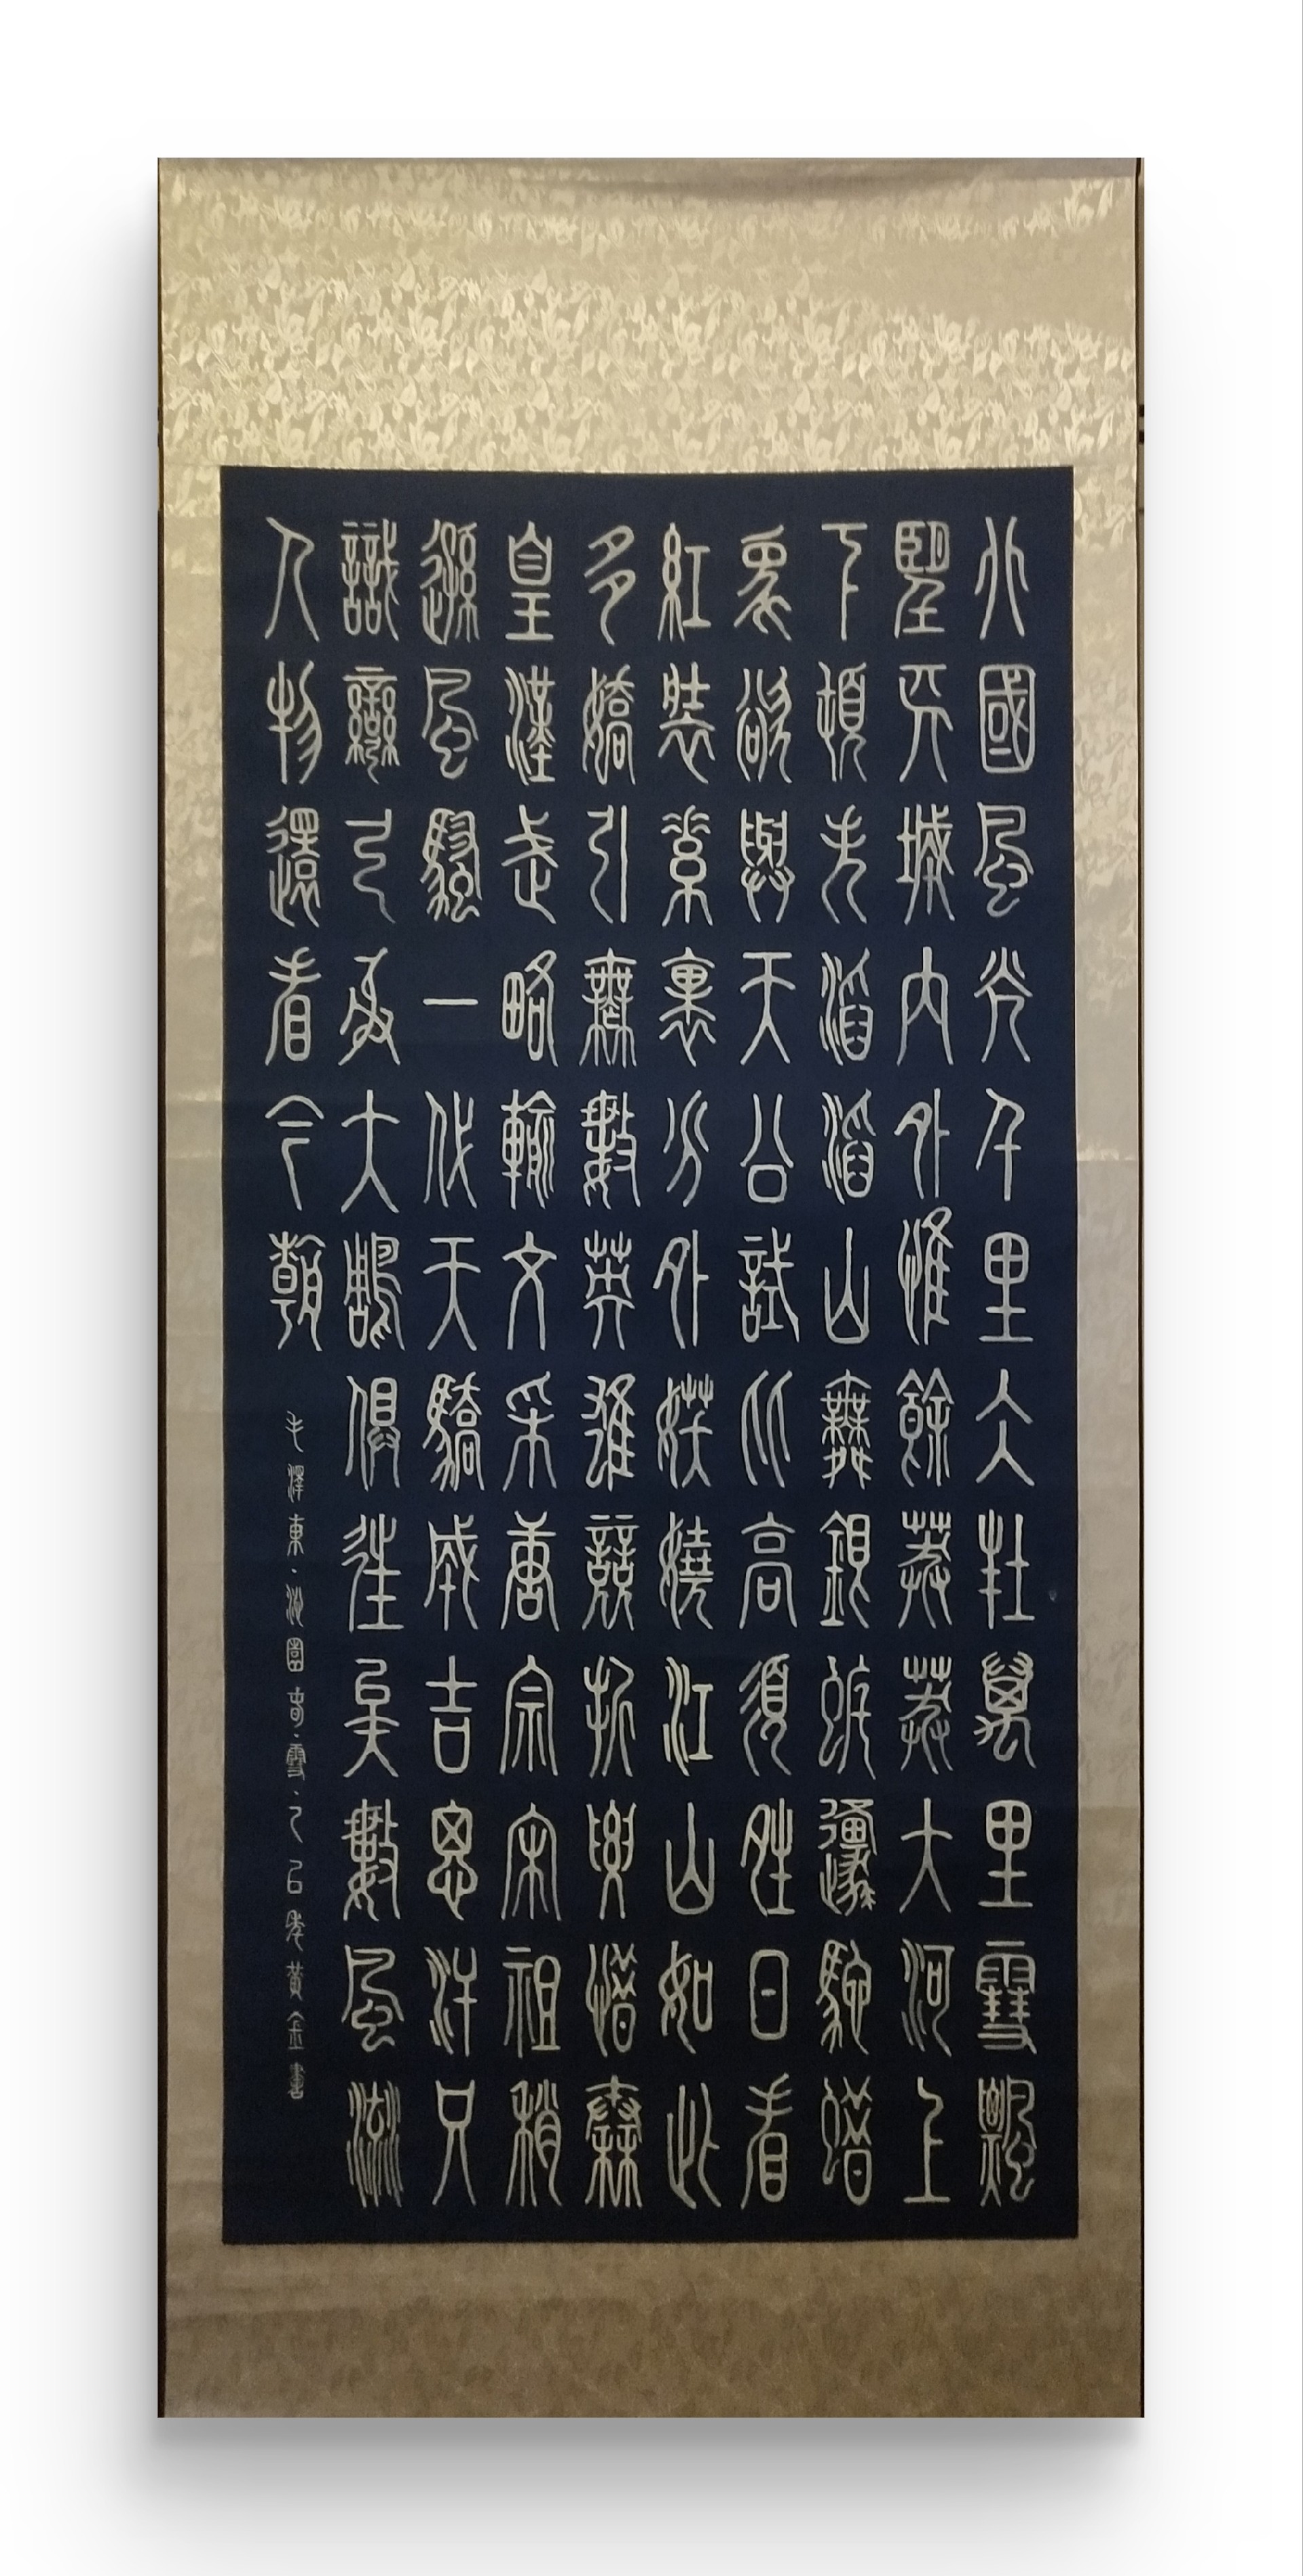 北國風光千里冰封萬里雪飄
望長城內外惟餘莽莽大河上
下頓失滔滔山舞銀蛇原馳蠟
象欲與天公試比高須晴日看
紅裝素裹分外妖嬈江山如此
多嬌引無數英雄競折腰惜秦
皇漢武略輸文采唐宗宋祖稍
遜風騷一代天驕成吉思汗只
識彎弓射大鵰俱往矣數風流
人物還看今朝
毛澤東、沁園春、雪、乙巳年黃金書